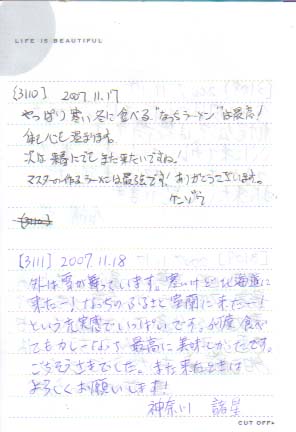 LIFE IS BEAUTIFUL
[3110] 2007.11.17
やっぱり寒い冬に食べる"なっちラーメン"は最高!
体も心も温まります。
次は春にでもまた来たいですね!
マスターの作るラーメンは最強です! ありがとうございます。
ケンゾウ
[3110]
[3111] 2007.11.18
外は雪が舞っています。寒いけど北海道に
来たー! なっちのふるさと室蘭に来たー!
という充実感でいっぱいです。何度食べ
てもカレーなっち 最高に美味しかったです。
ごちそうさまでした。また来たときは
よろしくお願いします!
神奈川 諸星
CUT OFF